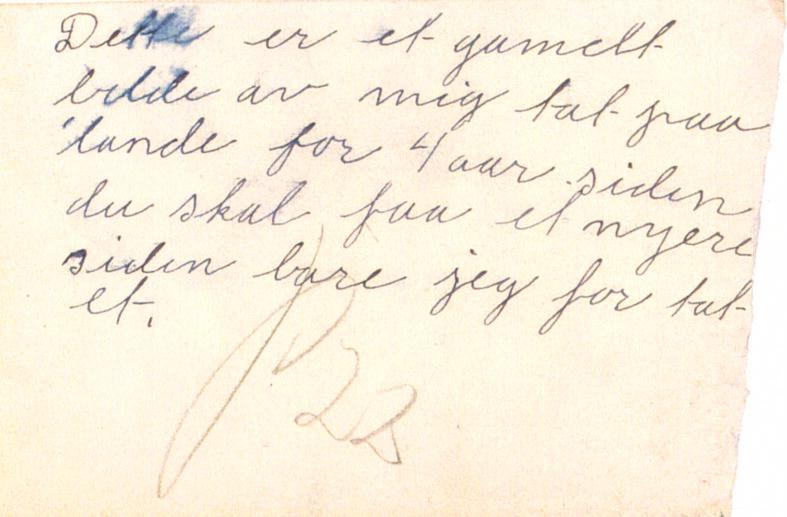 Dette er et gamelt
bilde av mig tat paa
lande for 4 aar siden
du skal faa et nyere
siden bare jeg for tat
et.
P22